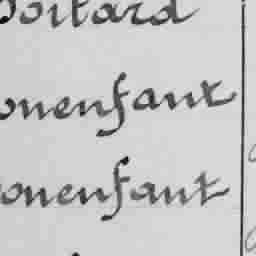 oitard
onenfant
onenfant